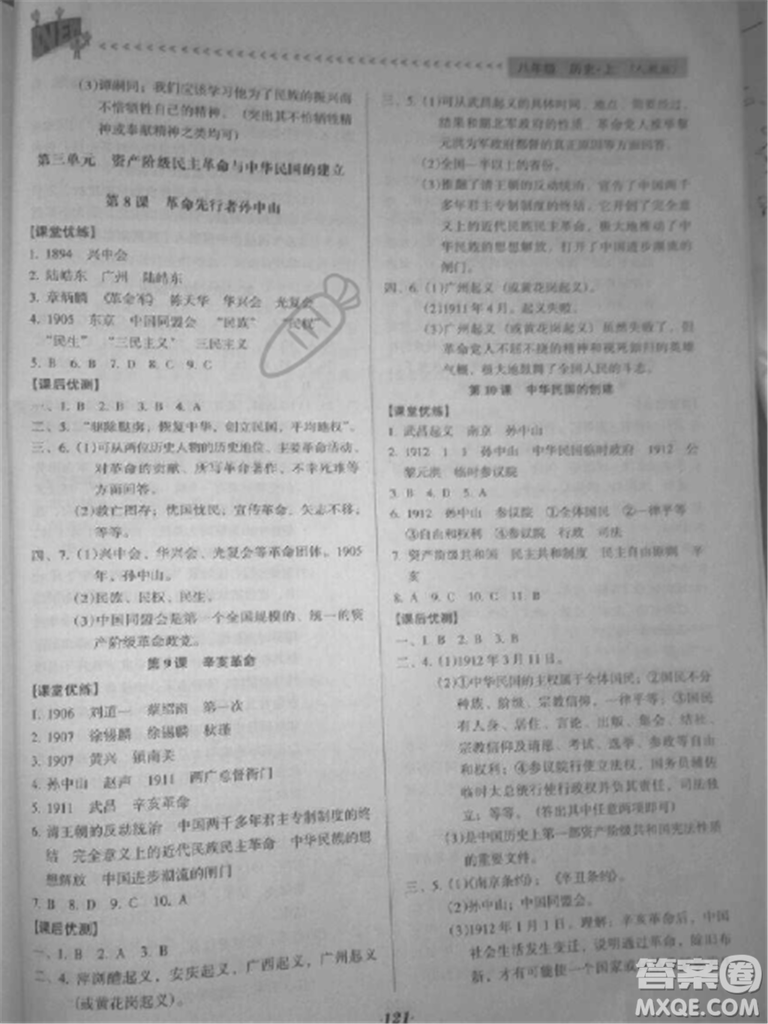 八年级 历史·上 (人教版)
(3)谭嗣同：我们应该学习他为了民族的振兴而
不惜牺牲自己的精神。(突出其不怕牺牲
精神或奉献精神之类均可)
第三单元 资产阶级民主革命与中华民国的建立
第8课 革命先行者孙中山
【课堂优练】
1. 1894 兴中会
2. 陆皓东 广州 陆皓东
3. 章炳麟 《革命军》 陈天华 华兴会 光复会
4. 1905 东京 中国同盟会 “民族” “民权”
“民生” “三民主义” 三民主义
5. B 6. B 7. D 8. C 9. C
【课后优测】
一、1. B 2. B 3. B 4. A
二、5. “驱除鞑虏，恢复中华，创立民国，平均地权。”
三、6. (1)可从两位历史人物的历史地位、主要革命活动、
对革命的贡献、所写革命著作、不幸死难等
方面回答。
(2)救亡图存；忧国忧民，宣传革命，矢志不移，
等等。
四、7. (1)兴中会、华兴会、光复会等革命团体。1905
年，孙中山。
(2)民族、民权、民生。
(3)中国同盟会是第一个全国规模的、统一的资
产阶级革命政党。
第9课 辛亥革命
【课堂优练】
1. 1906 刘道一 蔡绍南 第一次
2. 1907 徐锡麟 徐锡麟 秋瑾
3. 1907 黄兴 镇南关
4. 孙中山 赵声 1911 两广总督衙门
5. 1911 武昌 辛亥革命
6. 清王朝的反动统治 中国两千多年君主专制制度的终
结 完全意义上的近代民族民主革命 中华民族的思
想解放 中国进步潮流的闸门
7. B 8. D 9. C 10. A
【课后优测】
一、1. B 2. A 3. B
二、4. 萍浏醴起义，安庆起义，广西起义，广州起义
(或黄花岗起义)。
三、5. (1)可从武昌起义的具体时间、地点、意义，
结果和湖北军政府的成立、革命党人推举黎
元洪为军政府都督的真正原因等方面回答
(2)全国一半以上的省份。
(3)推翻了清王朝的反动统治，宣告了中国两
千多年君主专制制度的终结，它开创了完全意
义上的近代民族民主革命，极大地推动了中
华民族的思想解放，打开了中国进步潮流的
闸门。
四、6. (1)广州起义(或黄花岗起义)。
(2)1911年4月。起义失败。
(3)广州起义(或黄花岗起义)虽然失败了，但
革命党人不屈不挠、英勇战斗的英雄
气概，极大地鼓舞了全国人民的斗志。
第10课 中华民国的创建
【课堂优练】
1. 武昌起义 南京 孙中山
2. 1912 1 1 孙中山 中华民国临时政府 1912 分
黎元洪 临时参议院
3. B 4. D 5. A
6. 1912 孙中山 参议院 ①全体国民 ②一律平等
③自由和权利 ④参议院 行政 司法
7. 资产阶级共和国 民主共和制度 民主共和国 辛
亥
8. A 9. C 10. C 11. B
【课后优测】
一、1. B 2. B 3. B
二、4. (1)1912年3月11日。
(2)①中华民国的主权属于全体国民；②全体国民不分
种族、阶级、宗教信仰，一律平等；③国民
有人身、居住、言论、出版、集会、结社、
宗教信仰及请愿、考试、选举、参政等自由
和权利；④参议院行使立法权，国务员辅佐
临时大总统行使行政权并负其责任，司法独
立；等等。(举出其中两项即可)
(3)是中国历史上第一部资产阶级共和国宪法性质
的重要文件。
三、5. (1)《南京条约》；《辛丑条约》。
(2)孙中山；中国同盟会。
(3)1912年1月1日。理解：辛亥革命后，中国
社会生活发生变迁，移风易俗，除旧布
新，才有可能使一个国家
·121·
答案圈
MXQE.COM